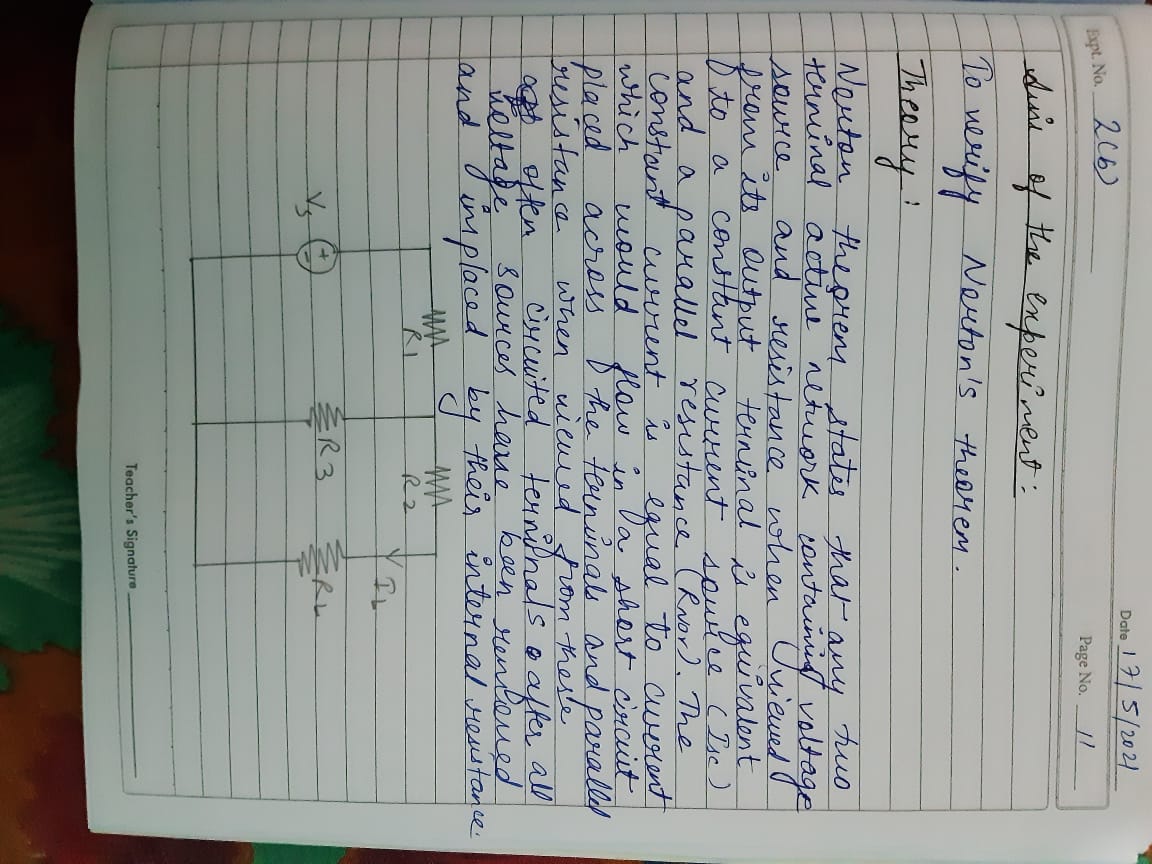 Date 17/5/2021
Expt. No. 2(b)
Page No. 11
Aim of the experiment:
To verify Norton's theorem.
Theory:
Norton theorem states that any two
terminal active network containing voltage
source and resistance when viewed
from its output terminal is equivalent
to a constant current source (Isc)
and a parallel resistance (RNor). The
constant current is equal to current
which would flow in a short circuit
placed across the terminals and parallel
resistance when viewed from these
often circuited terminals after all
voltage sources have been removed
and implaced by their internal resistance.
R1 R2
IL
Vs + - R3 RL
Teacher's Signature